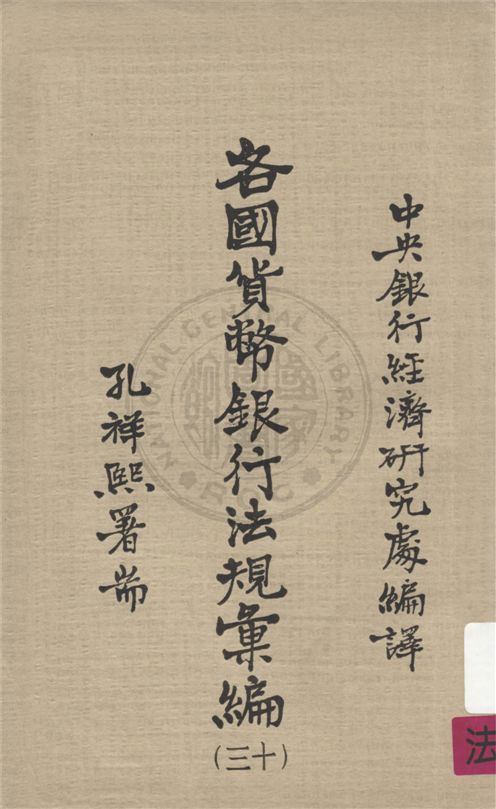 中央銀行經濟研究處編譯
各國貨幣銀行法規彙編
(三十)
孔祥熙署耑
法
NATIONAL CENTRAL LIBRARY
R.O.C.